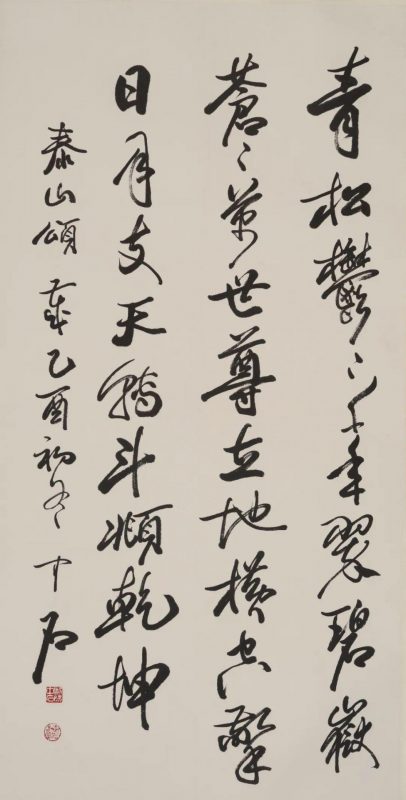 青松鬱〻千年翠碧嶽
蒼〻萬世尊立地橫空擎
日月支天斗頫乾坤
泰山頌 歲乙酉初冬 中石